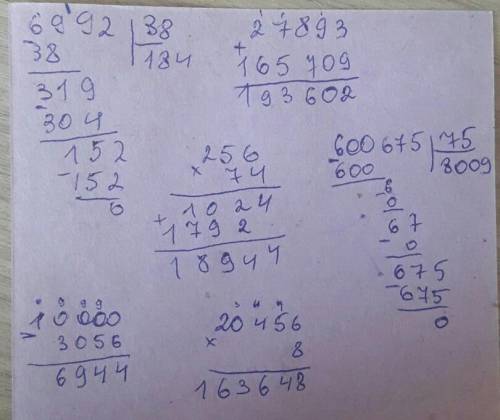 6992 | 38
38 | 184
319
304
152
-152
0
27893
+
165 709
193602
256
× 74
1024
+
1792
18944
600675 | 75
600 | 8009
-6
0
67
- 0
675
-675
0
10000
- 3056
6944
20456
× 8
163648